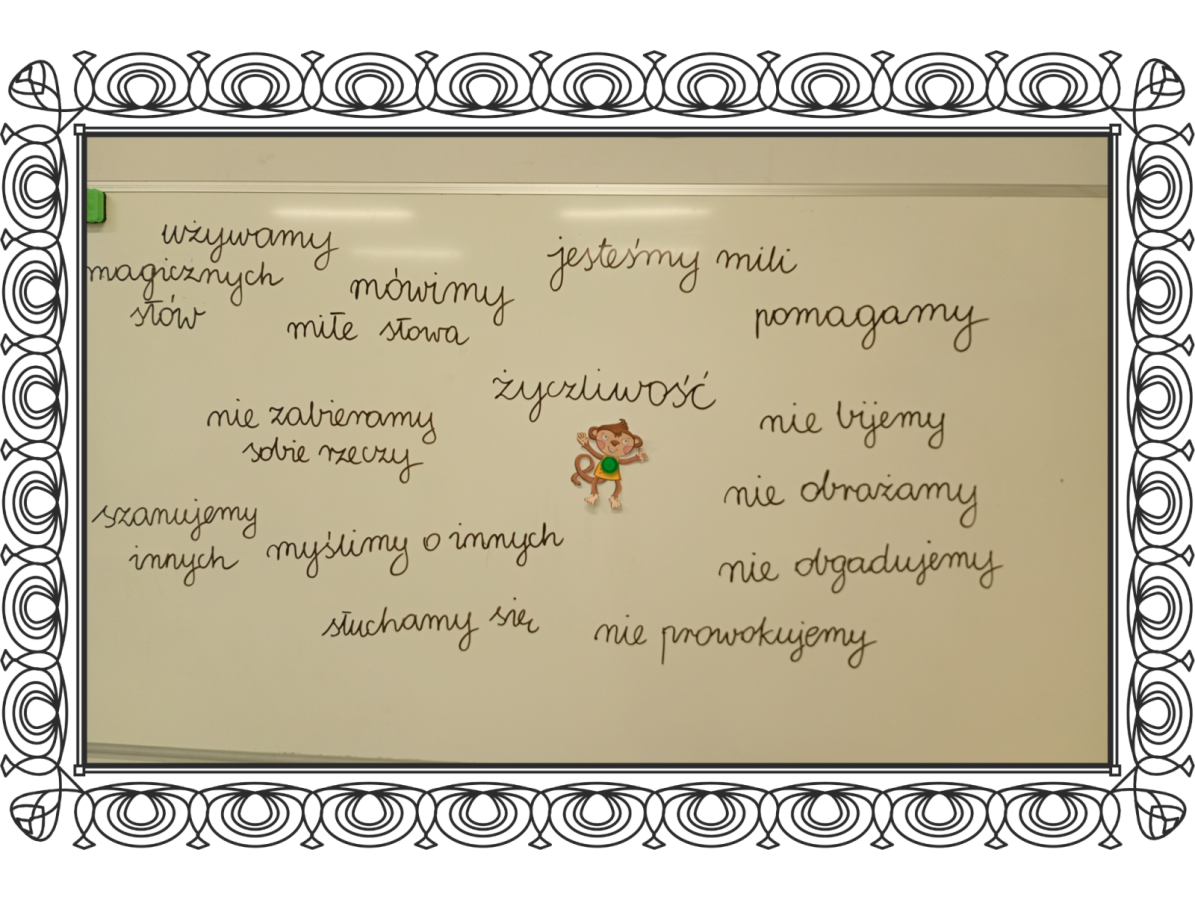 używamy
magicznych
słów
mówimy
miłe słowa
jesteśmy mili
pomagamy
życzliwość
nie zabieramy
sobie rzeczy
nie bijemy
nie obrażamy
szanujemy
innych
myślimy o innych
nie obgadujemy
słuchamy się
nie prowokujemy